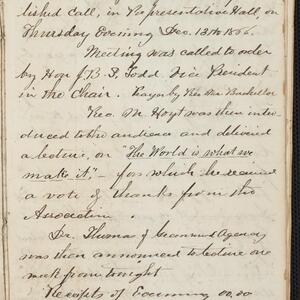 lished call, in Representative Hall, on
Thursday Evening Dec. 13th 1866.
Meeting was called to order
by Hon J. B. S. Todd, Vice President
in the Chair. Prayer by Rev Mr Batchellor
Geo. M. Hoyt was then intro
duced to the audience and delivered
a lecture, on "The World is what we
make it," - for which he received
a vote of thanks from the
Association.
Dr. Thomas of Agency
was then announced to lecture one
week from tonight
Receipts of Evening